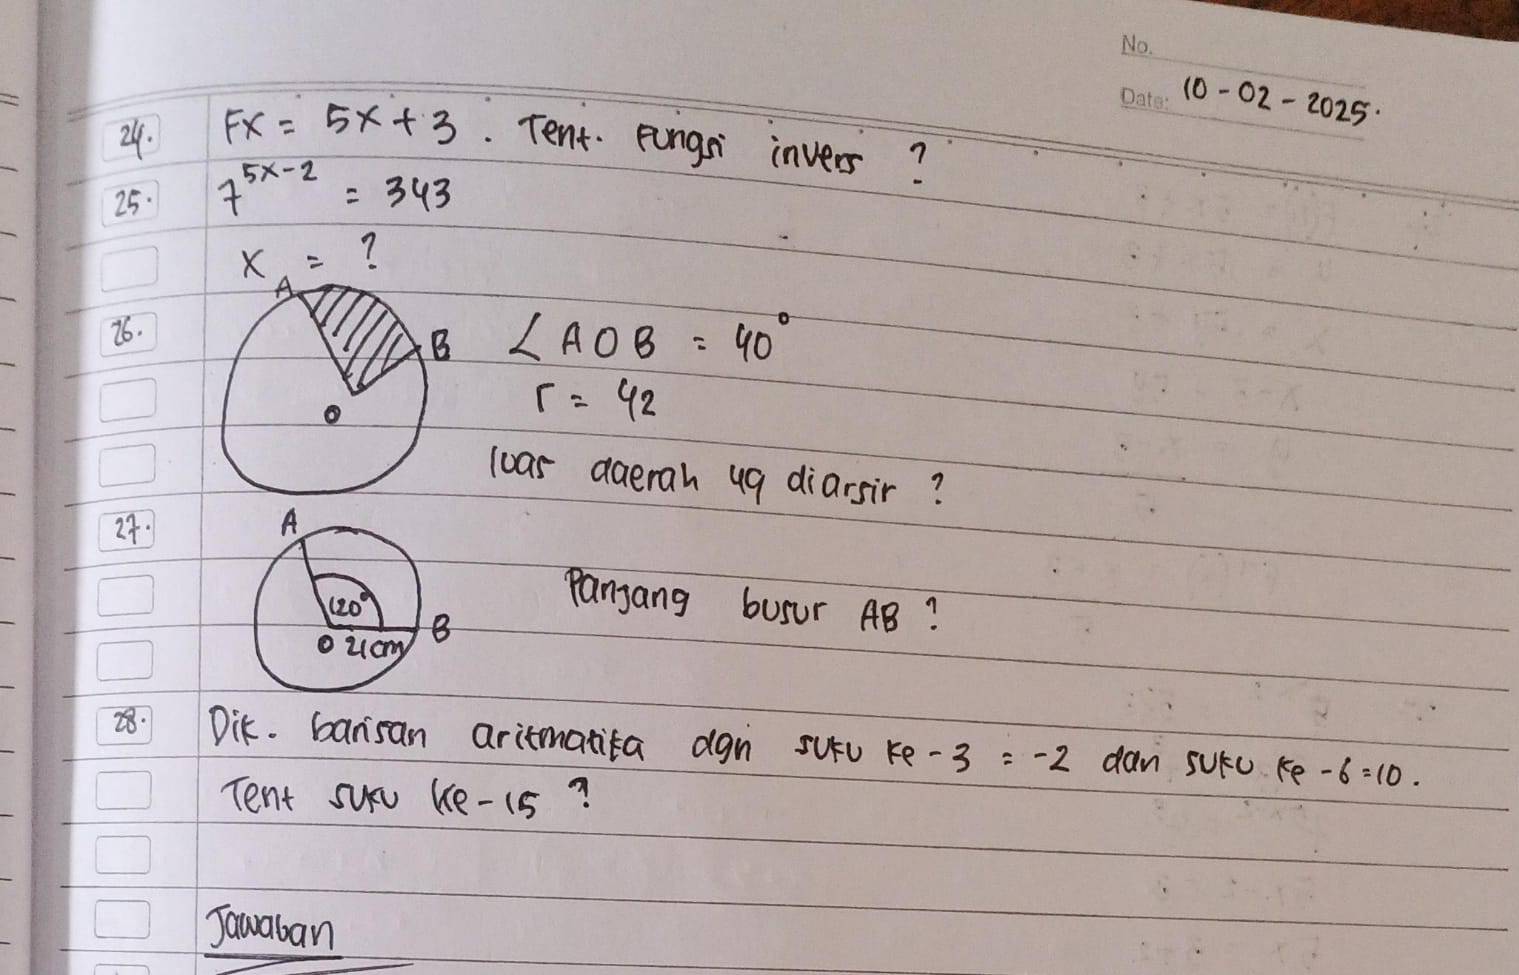 No.
Date: 10-02-2025.
24. Fx = 5x+3. Tent. Fungsi invers ?
25. 7^5x-2 = 343
x = ?
A
26. B ∠AOB = 40°
O r = 42
luas daerah yg diarsir ?
27. A
120° Panjang busur AB ?
O 21cm B
28. Dik. barisan aritmatika dgn suku ke-3 = -2 dan suku ke-6=10.
Tent suku ke-15 ?
Jawaban